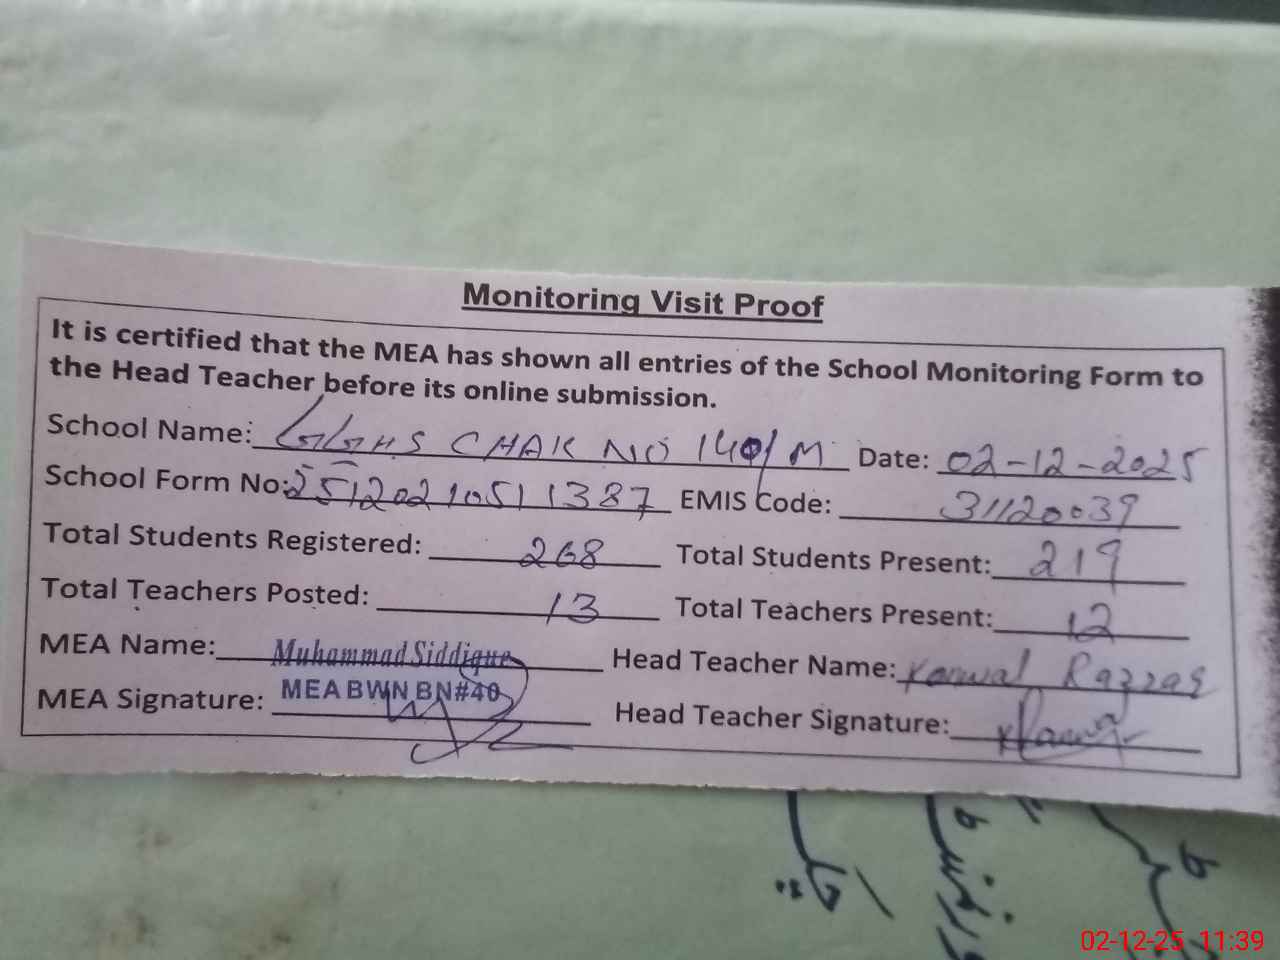 Monitoring Visit Proof
It is certified that the MEA has shown all entries of the School Monitoring Form to
the Head Teacher before its online submission.
School Name: GGHS CHAK NO 140/M Date: 02-12-2025
School Form No: 25120210511387 EMIS Code: 31120039
Total Students Registered: 268 Total Students Present: 219
Total Teachers Posted: 13 Total Teachers Present: 12
MEA Name: Muhammad Siddique Head Teacher Name: Kanwal Razzaq
MEA Signature: MEA BWN BN#40 Head Teacher Signature:
02-12-25 11:39